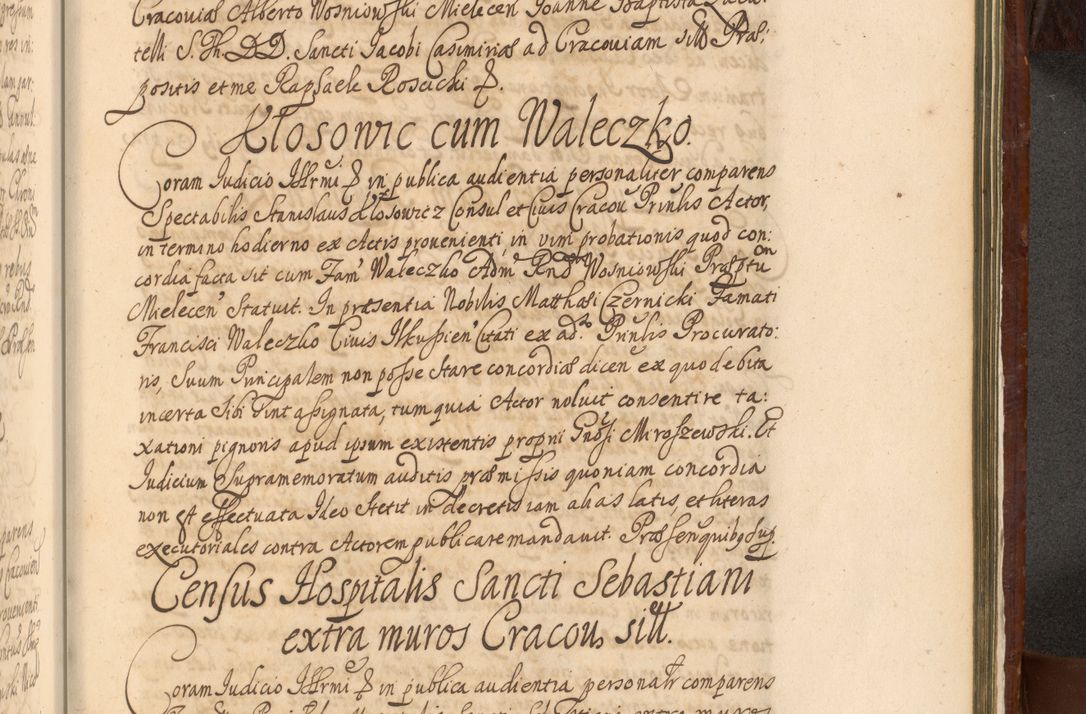 Cracoviæ Alberto Wosniowski Mielecen Joanne Baptista
telli S. Th. DD. Sancti Jacobi Casimiriæ ad Cracoviam sitt Præ:
positis et me Raphaele Roscicki &.
Kłosowic cum Waleczko.
Coram Judicio Illrmi & in publica audientia personaliter comparens
Spectabilis Stanislaus Kłosowicz Consul et Civis Cracou Prinlis Actor,
in termino hodierno ex Actis provenienti, in vim probationis quod con:
cordia facta sit cum Fam Waleczko Adm Rndo Wosniowski Præptum
Mielecen Statuit. In præsentia Nobilis Matthæi Czernicki Famati
Francisci Waleczko Civis Ilkussien Citati ex ad. Prinlis Procurato:
ris, Suum Principalem non posse stare concordiæ dicen ex quo debita
incerta Sibi sint assignata, tum quia Actor noluit consentire ta:
xationi pignoris apud ipsum existentis proprij Gnosi Miroszewski. Et
Judicium Supramemoratum auditis præmissis quoniam concordia
non est effectuata Ideo stetit in decretis iam alias latis, et literas
executoriales contra Actorem publicare mandavit. Præsen quibus sup.
Census Hospitalis Sancti Sebastiani
extra muros Cracou, sitt.
Coram Judicio Illrmi & in publica audientia personalr comparens